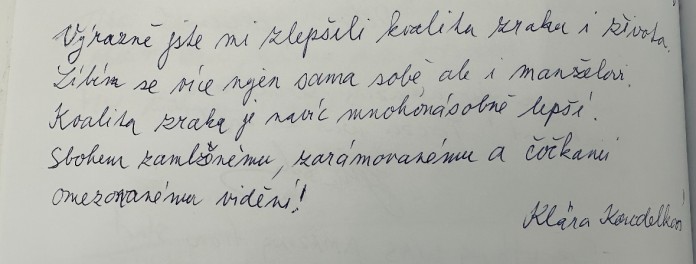 Výrazně jste mi zlepšili kvalitu zraku i života.
Líbím se více nejen sama sobě ale i manželovi.
Kvalita zraku je navíc mnohonásobně lepší.
Sbohem zamlženému, zarámovanému a čočkami
omezovanému vidění!
Klára Koudelková